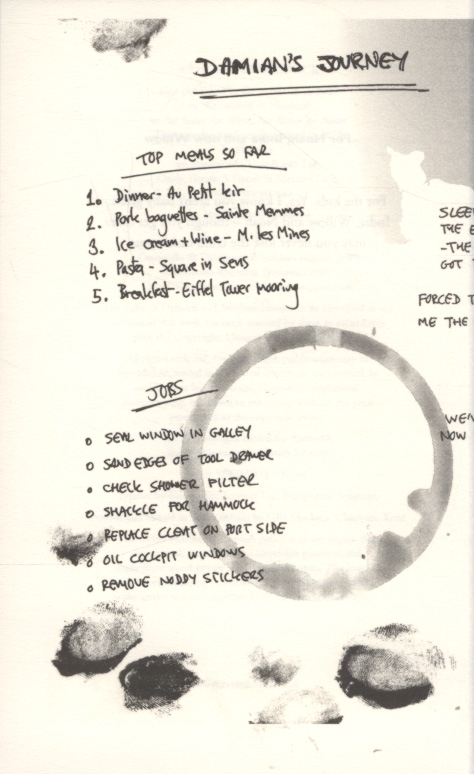 DAMIAN'S JOURNEY
TOP MEALS SO FAR
1. Dinner - Au Petit Kir
2. Pork baguettes - Sainte Memmes
3. Ice cream + Wine - M. les Mines
4. Pasta - Square in Sens
5. Breakfast - Eiffel Tower mooring
JOBS
o SEAL WINDOW IN GALLEY
o SAND EDGES OF TOOL DRAWER
o CHECK SHOWER FILTER
o SHACKLE FOR HAMMOCK
o REPLACE CLEAT ON PORT SIDE
o OIL COCKPIT WINDOWS
o REMOVE NODDY STICKERS
SLEE
THE E
-THE
GOT
FORCED T
ME THE
WEN
NOW